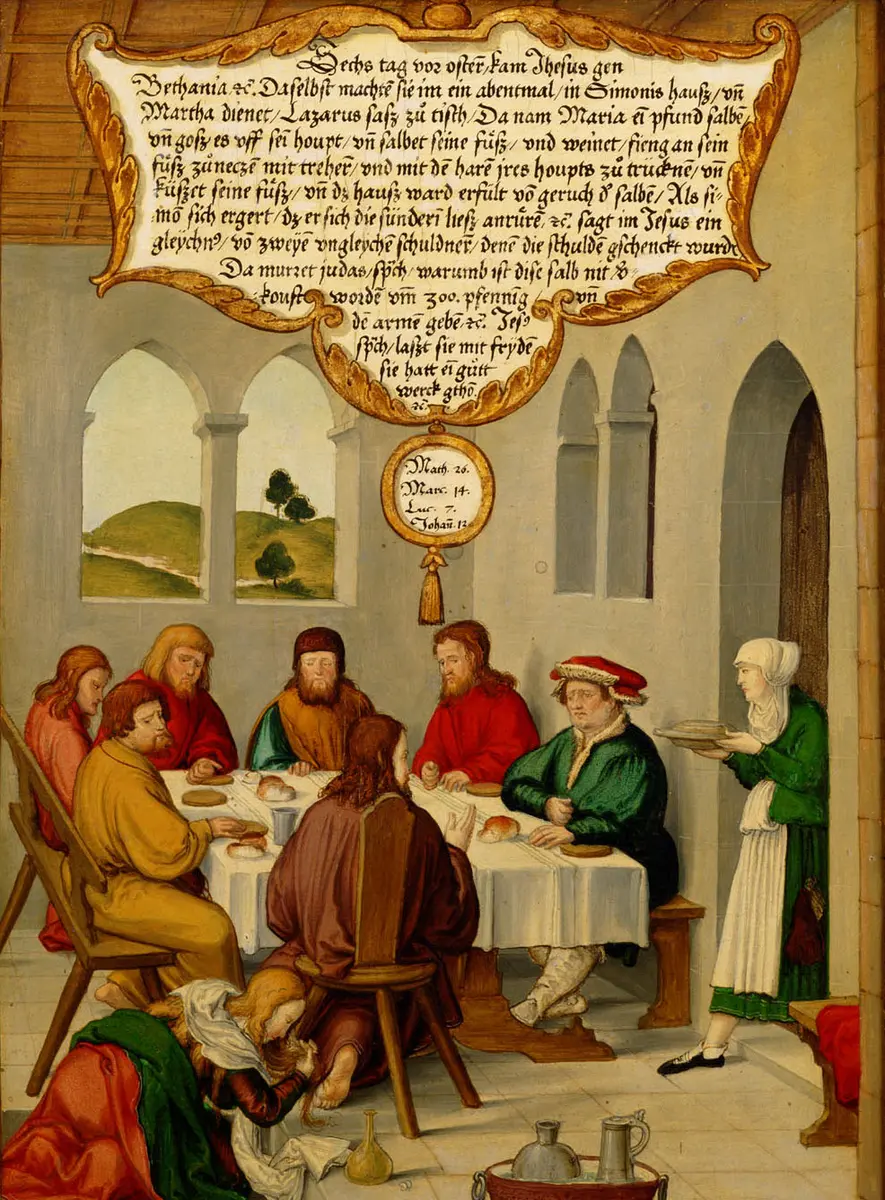 Sechs tag vor osteñ/kam Jhesus gen
Bethania ꝛc̃. Daselbst machtẽ sie im ein abentmal/in Simonis hausz/vñ
Martha dienet/Lazarus sasz zů tisch/Da nam Maria eĩ pfund salbẽ/
vñ gosz es vff seĩ houpt/vñ salbet seine fůsz/vnd weinet/fieng an sein
fůsz zůneczẽ mit treheñ/vnd mit dẽ harẽ jres houpts zů trücknẽ/vñ
küszet seine fůsz/vñ dz hausz ward erfült võ geruch d̕ salbẽ/Als si-
mõ sich ergert/dz er sich die sünderĩ liesz anrůrẽ/ꝛc̃. sagt im Jesus ein
gleychnꝰ/võ zweyẽ vngleychẽ schuldneñ/denẽ die schuldẽ gschenckt wurdẽ
Da murret judas/sp̃ch/warumb ist dise salb nit v̕-
koufft wordẽ vm̃ 300. pfenniĝ/vñ
dẽ armẽ gebẽ/ꝛc̃. Jesꝰ
sp̃ch/laszt sie mit frydẽ
sie hatt eĩ gůtt
werck gthõ.
ꝛc̃.
Math. 26.
Marc. 14.
Luc. 7.
Johañ. 12.